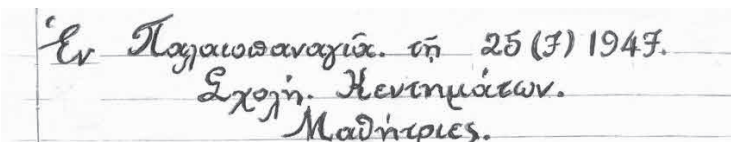 Ἐν Παλαιοπαναγιᾶ. τῇ 25 (7) 1947.
Σχολή. Κεντημάτων.
Μαθήτριες.